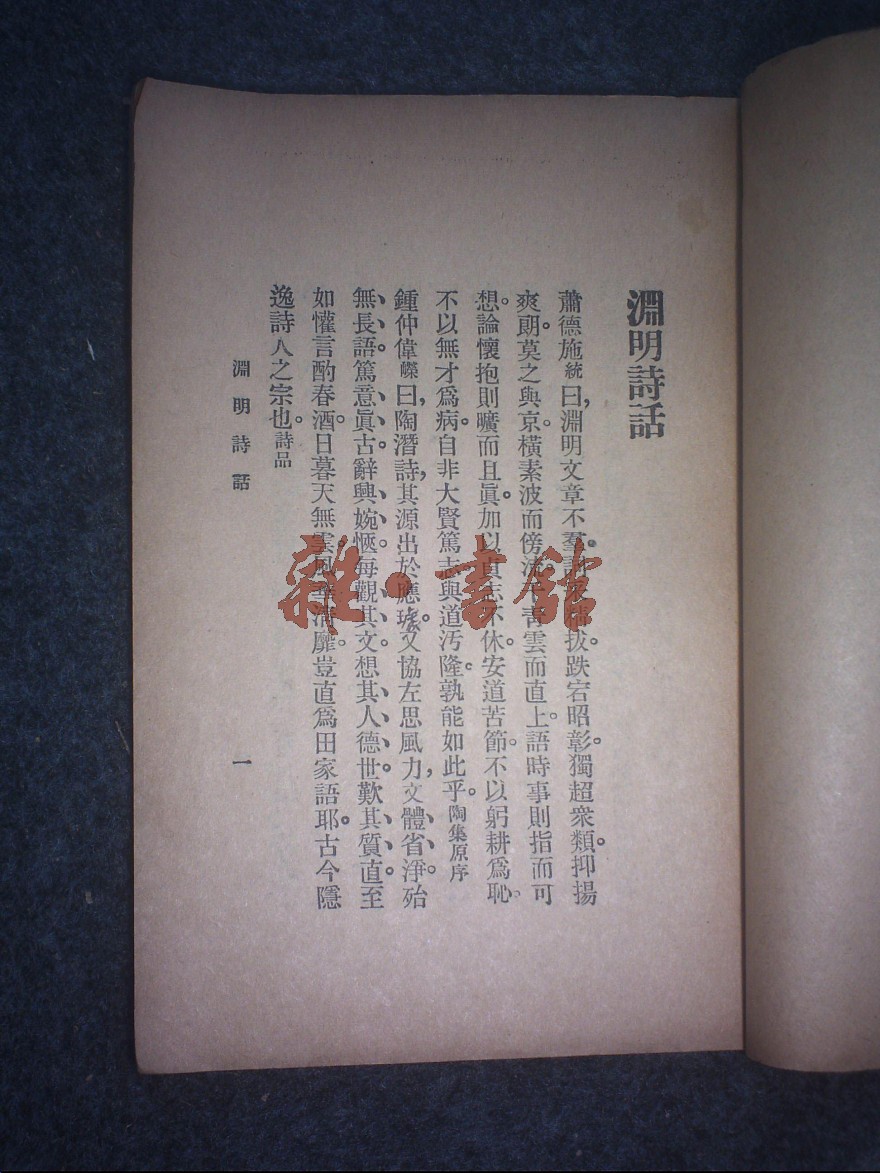 淵明詩話
蕭德施統曰,淵明文章不羣。拔。跌宕昭彰。獨超衆類。抑揚
爽朗。莫之與京。橫素波而傍流。干青雲而直上。語時事則指而可
想。論懷抱則曠而且眞。加以貞志不休。安道苦節。不以躬耕爲恥。
不以無才爲病。自非大賢篤志與道汚隆。孰能如此乎。陶集原序
鍾仲偉嶸曰,陶潛詩,其源出於應璩。又協左思風力,文體省淨,殆
無長語。篤意眞古。辭興婉愜。每觀其文。想其人德。世歎其質直。至
如懽言酌春酒。日暮天無雲。風華清靡。豈直爲田家語耶。古今隱
逸詩人之宗也。詩品
淵明詩話 一
雜·書館